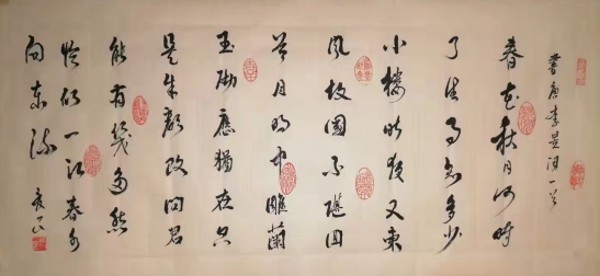 書唐李煜詞一首
春花秋月何時
了往事知多少
小樓昨夜又東
風故國不堪回
首月明中雕蘭
玉砌應猶在只
是朱顏改問君
能有幾多愁
恰似一江春水
向東流